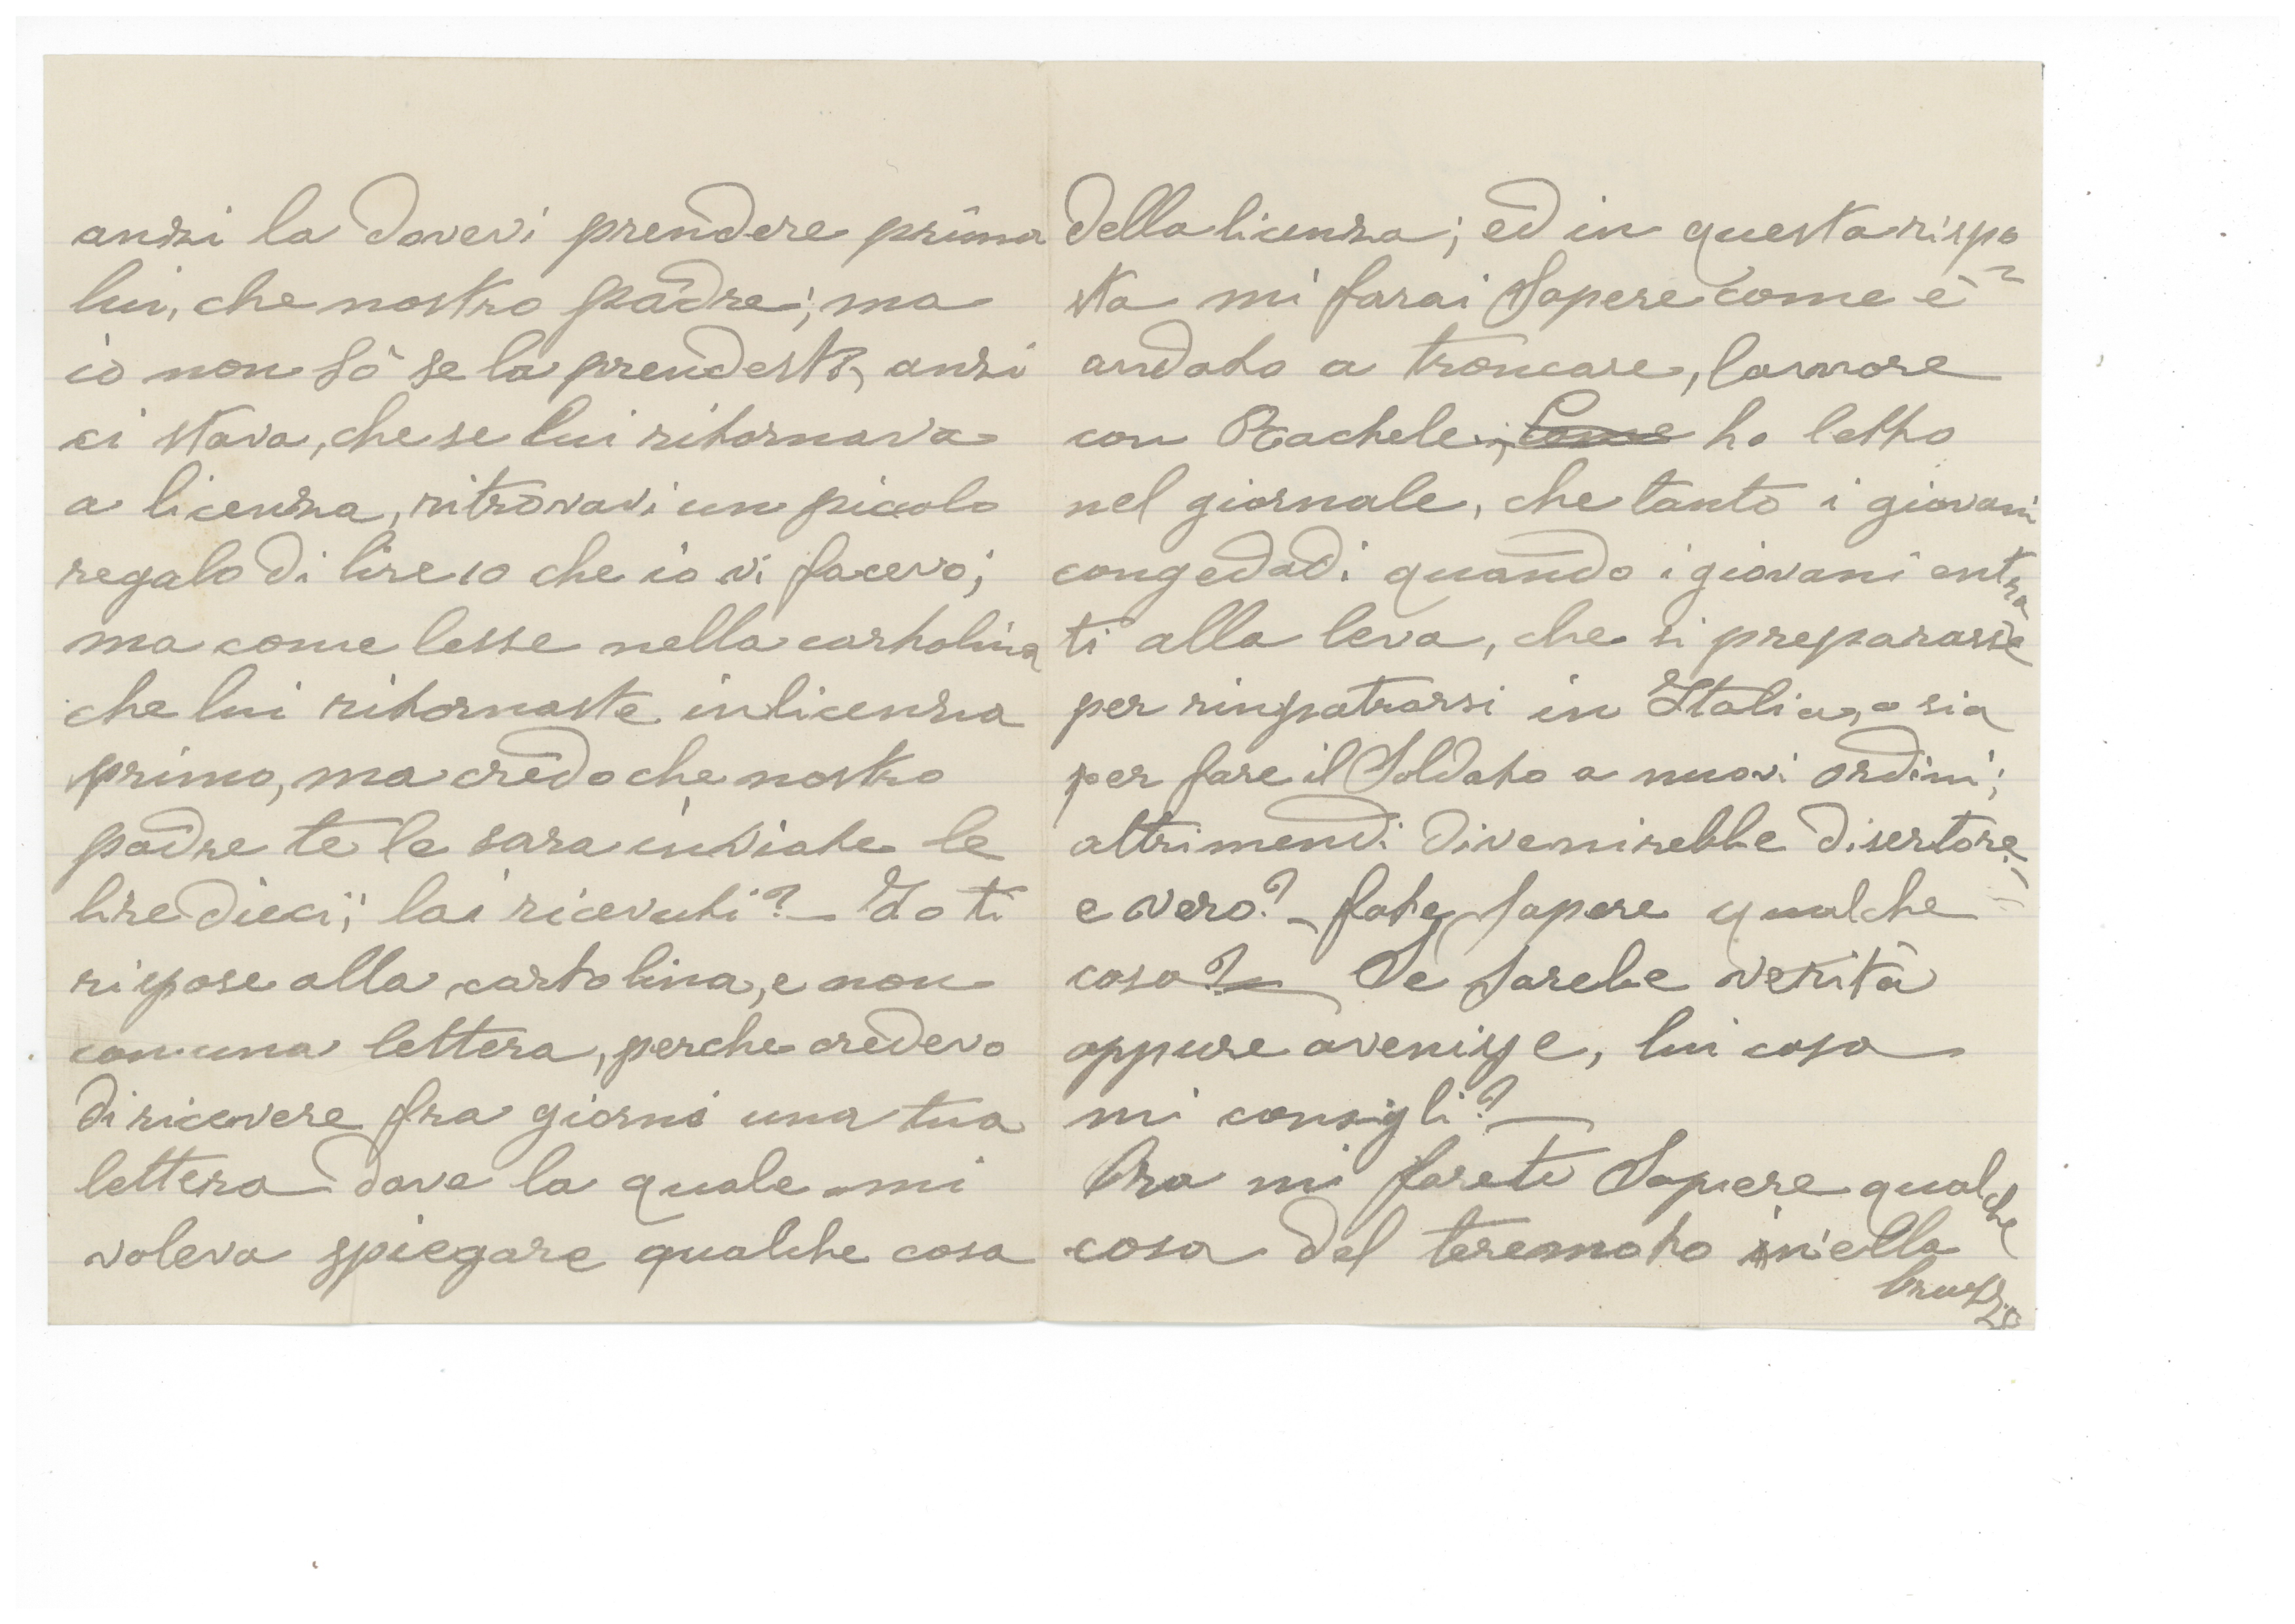 anzi la dovevi prendere prima
lui, che nostro padre; ma
io non sò se la prendesti, anzi
ci stava, che se lui ritornava
a licenza, ritrovavi un piccolo
regalo di lire 10 che io vi facevo;
ma come lesse nella cartolina
che lui ritornaste in licenza
primo, ma credo che nostro
padre te le sara inviate le
lire dieci; lai ricevuti? Io ti
rispose alla cartolina, e non
con una lettera, perche credevo
di ricevere fra giorni una tua
lettera dove la quale mi
voleva spiegare qualche cosa
della licenza; ed in questa rispo
sta mi farai Sapere come è
andato a troncare, lamore
con Rachele; come ho letto
nel giornale, che tanto i giovani
congedadi quando i giovani entra
ti alla leva, che si preparasse
per rinpatrarsi in Italia, o sia
per fare il Soldato a nuovi ordini;
altrimendi divenirebbe disertore,
e vero? fate Sapere qualche
cosa? Se Sarebe verità
oppure avenisse, lui cosa
mi consigli?
Ora mi farete Sapere qualche
cosa del teremoto nella